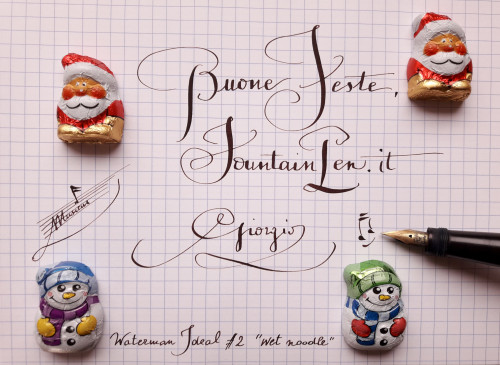 Buone Feste,
FountainPen.it
Musicus
Giorgio
Waterman Ideal #2 "Wet noodle"